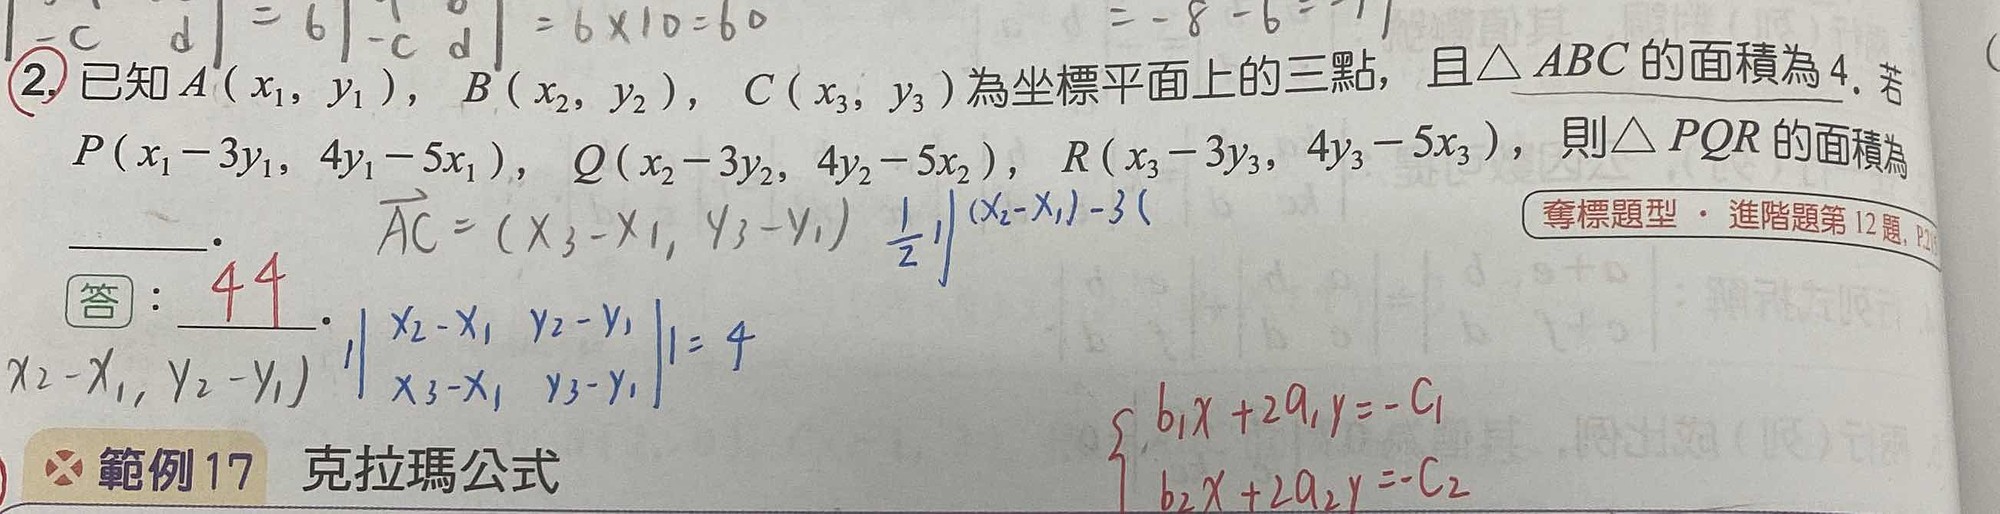 -c d | = 6 | -c d | = 6×10=60
= -8 -6 =
2. 已知 A ( x₁, y₁ ), B ( x₂, y₂ ), C ( x₃, y₃ ) 為坐標平面上的三點, 且△ ABC 的面積為 4. 若
P ( x₁－3y₁, 4y₁－5x₁ ), Q ( x₂－3y₂, 4y₂－5x₂ ), R ( x₃－3y₃, 4y₃－5x₃ ), 則△ PQR 的面積為
______.
AC = (x₃-x₁, y₃-y₁) 1/2 || (x₂-x₁)-3(
奪標題型 · 進階題第 12 題,
答 : 44 .
|| x₂-x₁ y₂-y₁
x₃-x₁ y₃-y₁ || = 4
x₂-x₁, y₂-y₁)
b₁x+2a₁y=-c₁
b₂x+2a₂y=-c₂
範例 17 克拉瑪公式